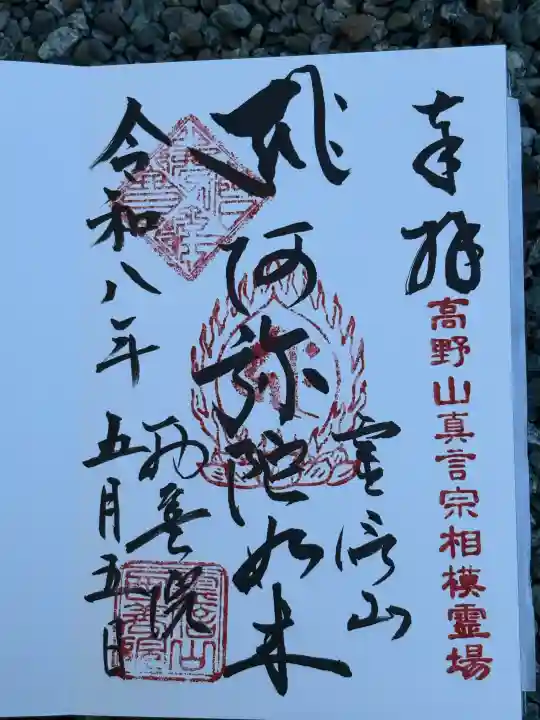 奉拝
高野山真言宗相模霊場
霊信山
阿弥陀如来
西養院
令和八年
五月五日